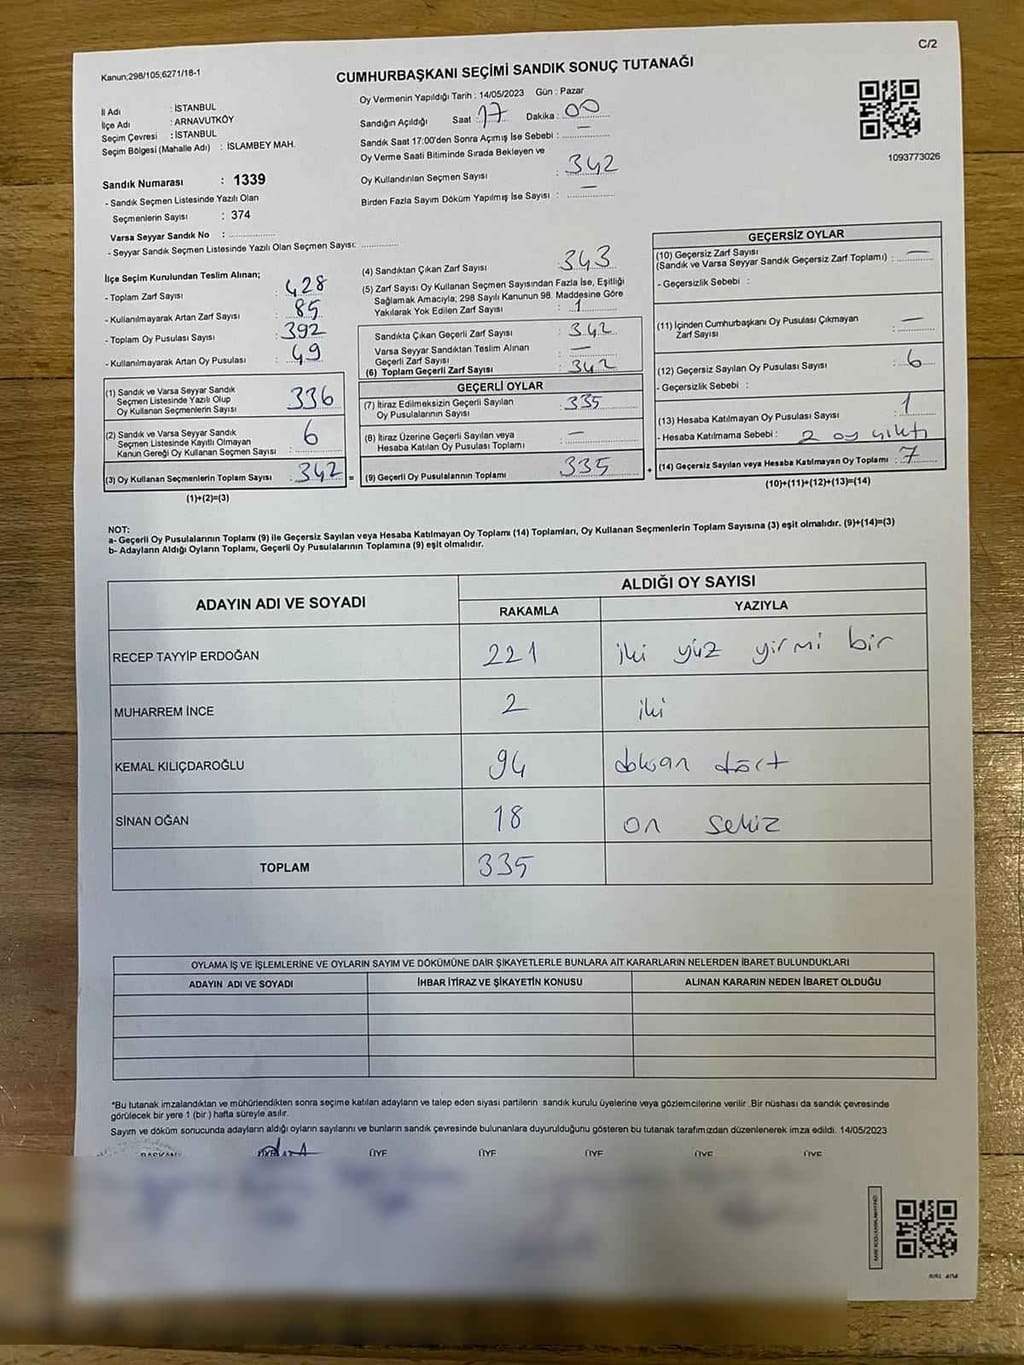 C/2
Kanun;298/105;6271/18-1
CUMHURBAŞKANI SEÇİMİ SANDIK SONUÇ TUTANAĞI
İl Adı : İSTANBUL
İlçe Adı : ARNAVUTKÖY
Seçim Çevresi : İSTANBUL
Seçim Bölgesi (Mahalle Adı) : İSLAMBEY MAH.
Sandık Numarası : 1339
- Sandık Seçmen Listesinde Yazılı Olan
Seçmenlerin Sayısı : 374
Varsa Seyyar Sandık No :
- Seyyar Sandık Seçmen Listesinde Yazılı Olan Seçmen Sayısı:
Oy Vermenin Yapıldığı Tarih : 14/05/2023 Gün : Pazar
Sandığın Açıldığı Saat 17 Dakika : 00
Sandık Saat 17:00'den Sonra Açımış İse Sebebi : —
Oy Verme Saati Bitiminde Sırada Bekleyen ve
Oy Kullandırılan Seçmen Sayısı : 342
Birden Fazla Sayım Döküm Yapılmış İse Sayısı : —
1093773026
İlçe Seçim Kurulundan Teslim Alınan;
- Toplam Zarf Sayısı : 428
- Kullanılmayarak Artan Zarf Sayısı : 85
- Toplam Oy Pusulası Sayısı : 392
- Kullanılmayarak Artan Oy Pusulası : 49
(1) Sandık ve Varsa Seyyar Sandık
Seçmen Listesinde Yazılı Olup
Oy Kullanan Seçmenlerin Sayısı : 336
(2) Sandık ve Varsa Seyyar Sandık
Seçmen Listesinde Kayıtlı Olmayan
Kanun Gereği Oy Kullanan Seçmen Sayısı : 6
(3) Oy Kullanan Seçmenlerin Toplam Sayısı : 342 =
(1)+(2)=(3)
(4) Sandıktan Çıkan Zarf Sayısı : 343
(5) Zarf Sayısı Oy Kullanan Seçmen Sayısından Fazla İse, Eşitliği
Sağlamak Amacıyla; 298 Sayılı Kanunun 98. Maddesine Göre
Yakılarak Yok Edilen Zarf Sayısı : 1
Sandıkta Çıkan Geçerli Zarf Sayısı : 342
Varsa Seyyar Sandıktan Teslim Alınan
Geçerli Zarf Sayısı : —
(6) Toplam Geçerli Zarf Sayısı : 342
GEÇERLİ OYLAR
(7) İtiraz Edilmeksizin Geçerli Sayılan
Oy Pusulalarının Sayısı : 335
(8) İtiraz Üzerine Geçerli Sayılan veya
Hesaba Katılan Oy Pusulası Toplamı : —
(9) Geçerli Oy Pusulalarının Toplamı : 335 +
GEÇERSİZ OYLAR
(10) Geçersiz Zarf Sayısı
(Sandık ve Varsa Seyyar Sandık Geçersiz Zarf Toplamı) : —
- Geçersizlik Sebebi :
(11) İçinden Cumhurbaşkanı Oy Pusulası Çıkmayan
Zarf Sayısı : —
(12) Geçersiz Sayılan Oy Pusulası Sayısı : 6
- Geçersizlik Sebebi :
(13) Hesaba Katılmayan Oy Pusulası Sayısı : 1
- Hesaba Katılmama Sebebi : 2 oy çıktı
(14) Geçersiz Sayılan veya Hesaba Katılmayan Oy Toplamı : 7
(10)+(11)+(12)+(13)=(14)
NOT:
a- Geçerli Oy Pusulalarının Toplamı (9) ile Geçersiz Sayılan veya Hesaba Katılmayan Oy Toplamı (14) Toplamları, Oy Kullanan Seçmenlerin Toplam Sayısına (3) eşit olmalıdır. (9)+(14)=(3)
b- Adayların Aldığı Oyların Toplamı, Geçerli Oy Pusulalarının Toplamına (9) eşit olmalıdır.
ADAYIN ADI VE SOYADI ALDIĞI OY SAYISI
RAKAMLA YAZIYLA
RECEP TAYYİP ERDOĞAN 221 iki yüz yirmi bir
MUHARREM İNCE 2 iki
KEMAL KILIÇDAROĞLU 94 doksan dört
SİNAN OĞAN 18 on sekiz
TOPLAM 335
OYLAMA İŞ VE İŞLEMLERİNE VE OYLARIN SAYIM VE DÖKÜMÜNE DAİR ŞİKAYETLERLE BUNLARA AİT KARARLARIN NELERDEN İBARET BULUNDUKLARI
ADAYIN ADI VE SOYADI İHBAR İTİRAZ VE ŞİKAYETİN KONUSU ALINAN KARARIN NEDEN İBARET OLDUĞU
*Bu tutanak imzalandıktan ve mühürlendikten sonra seçime katılan adayların ve talep eden siyasi partilerin sandık kurulu üyelerine veya gözlemcilerine verilir .Bir nüshası da sandık çevresinde
görülecek bir yere 1 (bir) hafta süreyle asılır.
Sayım ve döküm sonucunda adayların aldığı oyların sayılarını ve bunların sandık çevresinde bulunanlara duyurulduğunu gösteren bu tutanak tarafımızdan düzenlenerek imza edildi. 14/05/2023
BAŞKAN ÜYE ÜYE ÜYE ÜYE ÜYE ÜYE